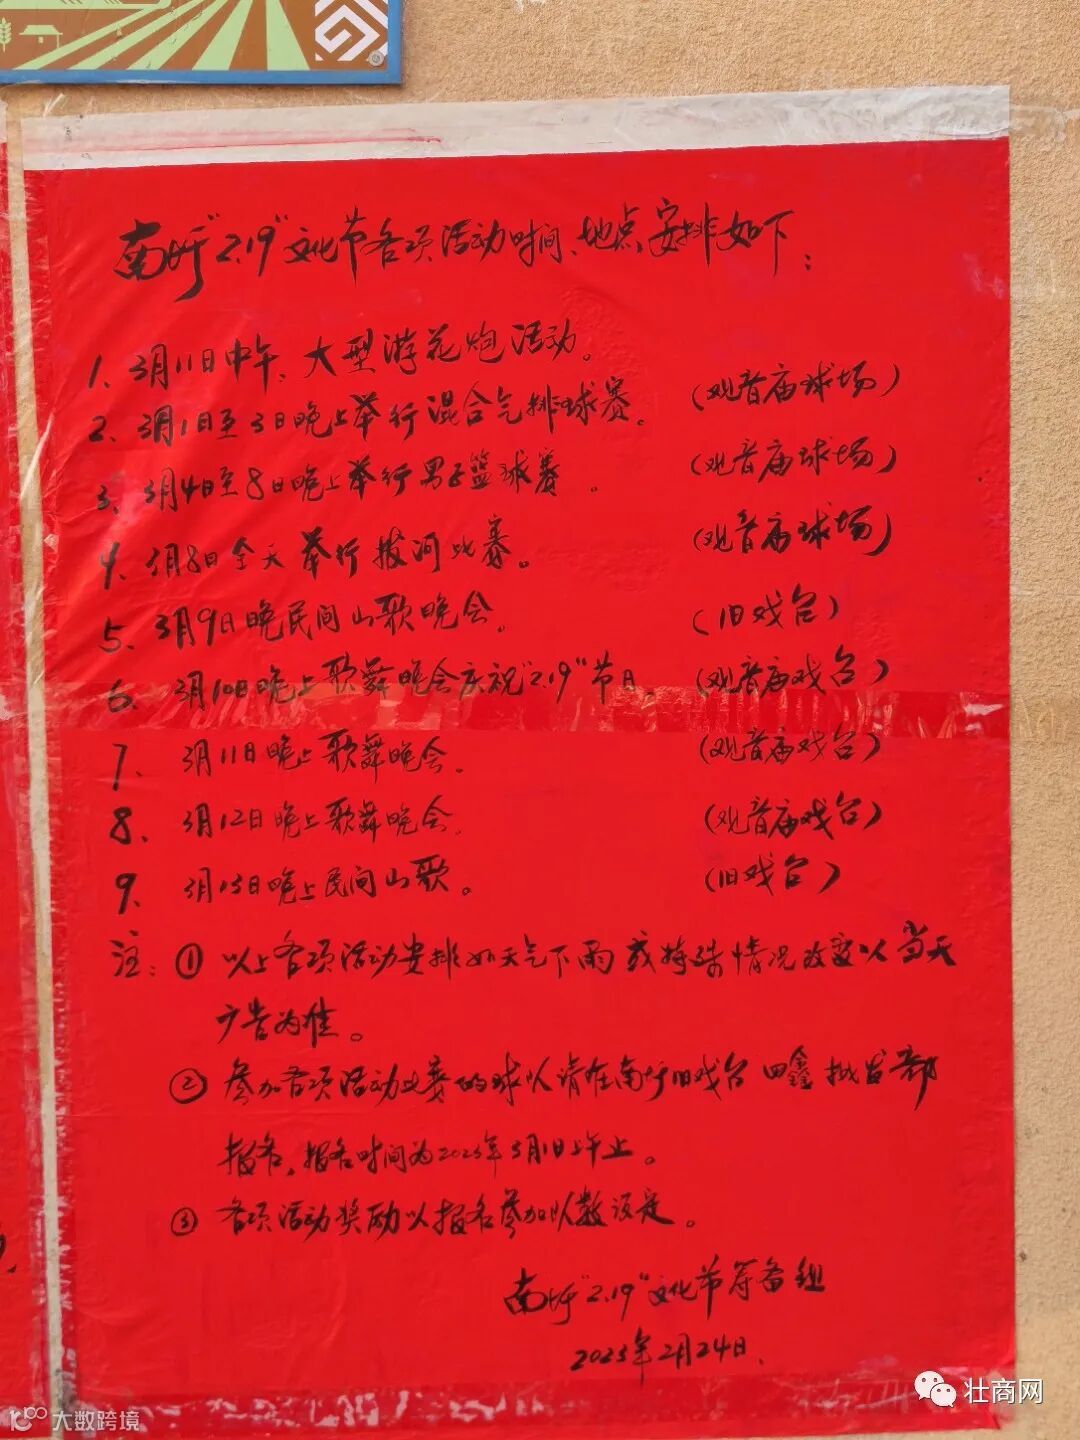 南圩"2.19"文化节各项活动时间、地点安排如下：
1、3月11日中午，大型游花炮活动。
2、3月1日至3日晚上举行混合气排球赛。（观音庙球场）
3、3月4日至8日晚上举行男子篮球赛。（观音庙球场）
4、3月8日全天举行拔河比赛。（观音庙球场）
5、3月9日晚民间山歌晚会。（旧戏台）
6、3月10日晚上歌舞晚会庆祝"2.19"节日。（观音庙戏台）
7、3月11日晚上歌舞晚会。（观音庙戏台）
8、3月12日晚上歌舞晚会。（观音庙戏台）
9、3月13日晚上民间山歌。（旧戏台）
注：①以上各项活动安排如天气下雨或特殊情况改变以当天
广告为准。
②参加各项活动比赛的球队请在南圩旧戏台田鑫批发部
报名，报名时间为2023年3月1日上午止。
③各项活动奖励以报名参加队数设定。
南圩"2.19"文化节筹备组
2023年2月24日.
壮商网
大数跨境